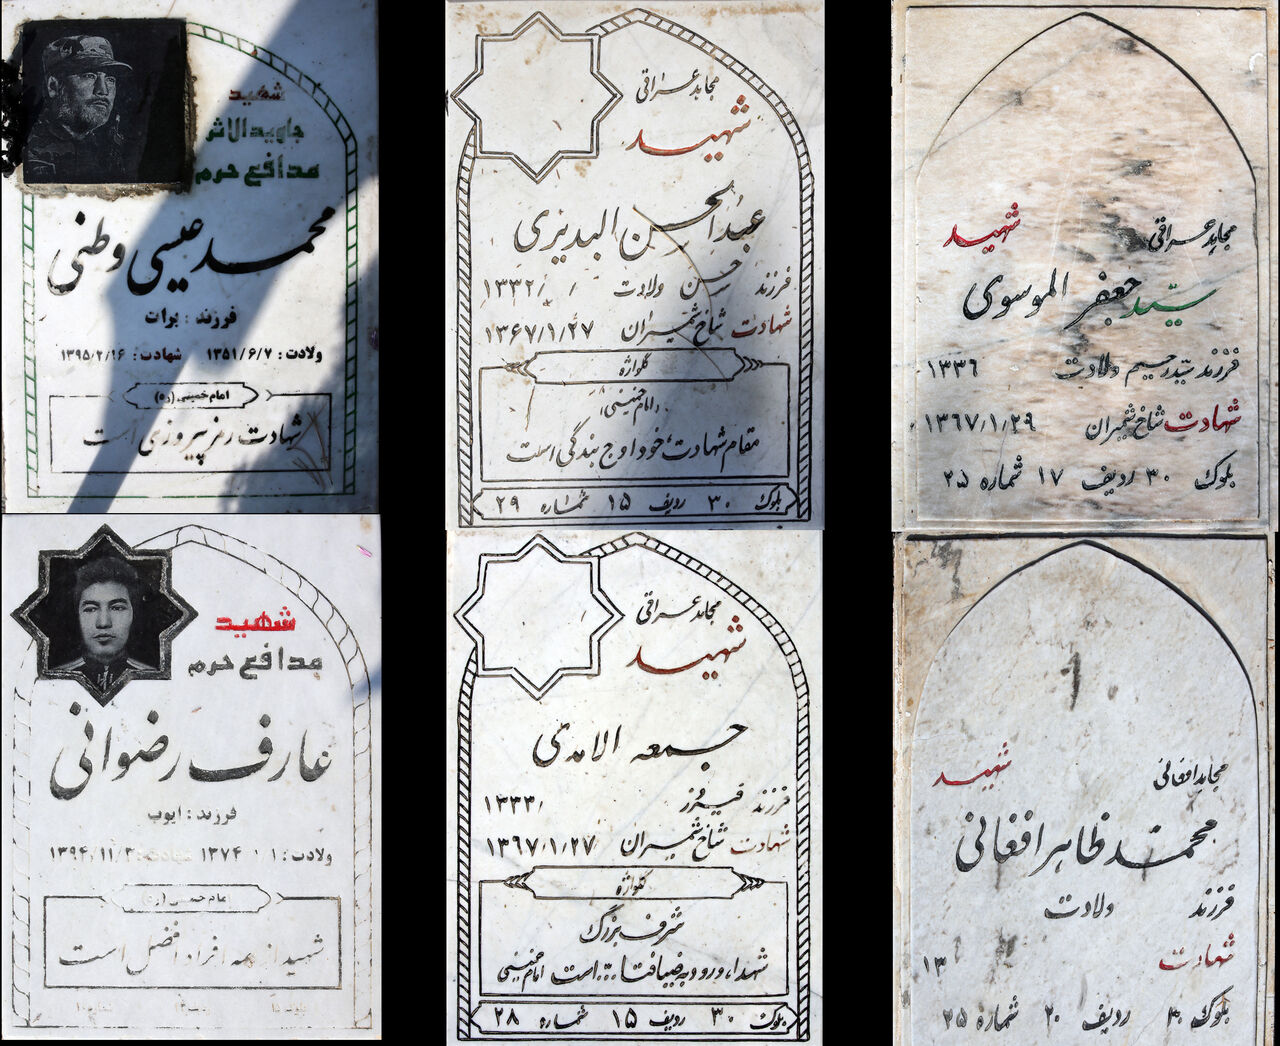 شهید
جاوید الاثر
مدافع حرم
محمد عیسی وطنی
فرزند : برات
ولادت : ۱۳۵۱/۶/۷ شهادت : ۱۳۹۵/۲/۱۶
امام خمینی (ره)
شهادت رمز پیروزی است
مجاهد عراقی
شهید
عبدالحسن البدیری
فرزند حسن ولادت ۱۳۳۲/ /
شهادت شاخ شمیران ۱۳۶۷/۱/۲۷
گلواژه
«امام خمینی»
مقام شهادت، خود اوج بندگی است
بلوک ۳۰ ردیف ۱۵ شماره ۲۹
مجاهد عراقی شهید
سید جعفر الموسوی
فرزند سید رحیم ولادت ۱۳۳۶
شهادت شاخ شمیران ۱۳۶۷/۱/۲۹
بلوک ۳۰ ردیف ۱۷ شماره ۲۵
شهید
مدافع حرم
عارف رضوانی
فرزند : ایوب
ولادت : ۱۳۷۴/۱/۱ شهادت : ۱۳۹۴/۱۱/۳
امام خمینی (ره)
شهید از همه افراد افضل است
مجاهد عراقی
شهید
جمعه الامدی
فرزند ۱۳۳۳/
شهادت شاخ شمیران ۱۳۶۷/۱/۲۷
گلواژه
شرف بزرگ
شهدا، ورود به ضیافت ا... است امام خمینی
بلوک ۳۰ ردیف ۱۵ شماره ۲۸
مجاهد افغانی شهید
محمد ظاهر افغانی
فرزند ولادت
شهادت ۱۳
بلوک ۳۰ ردیف ۲۰ شماره ۲۵